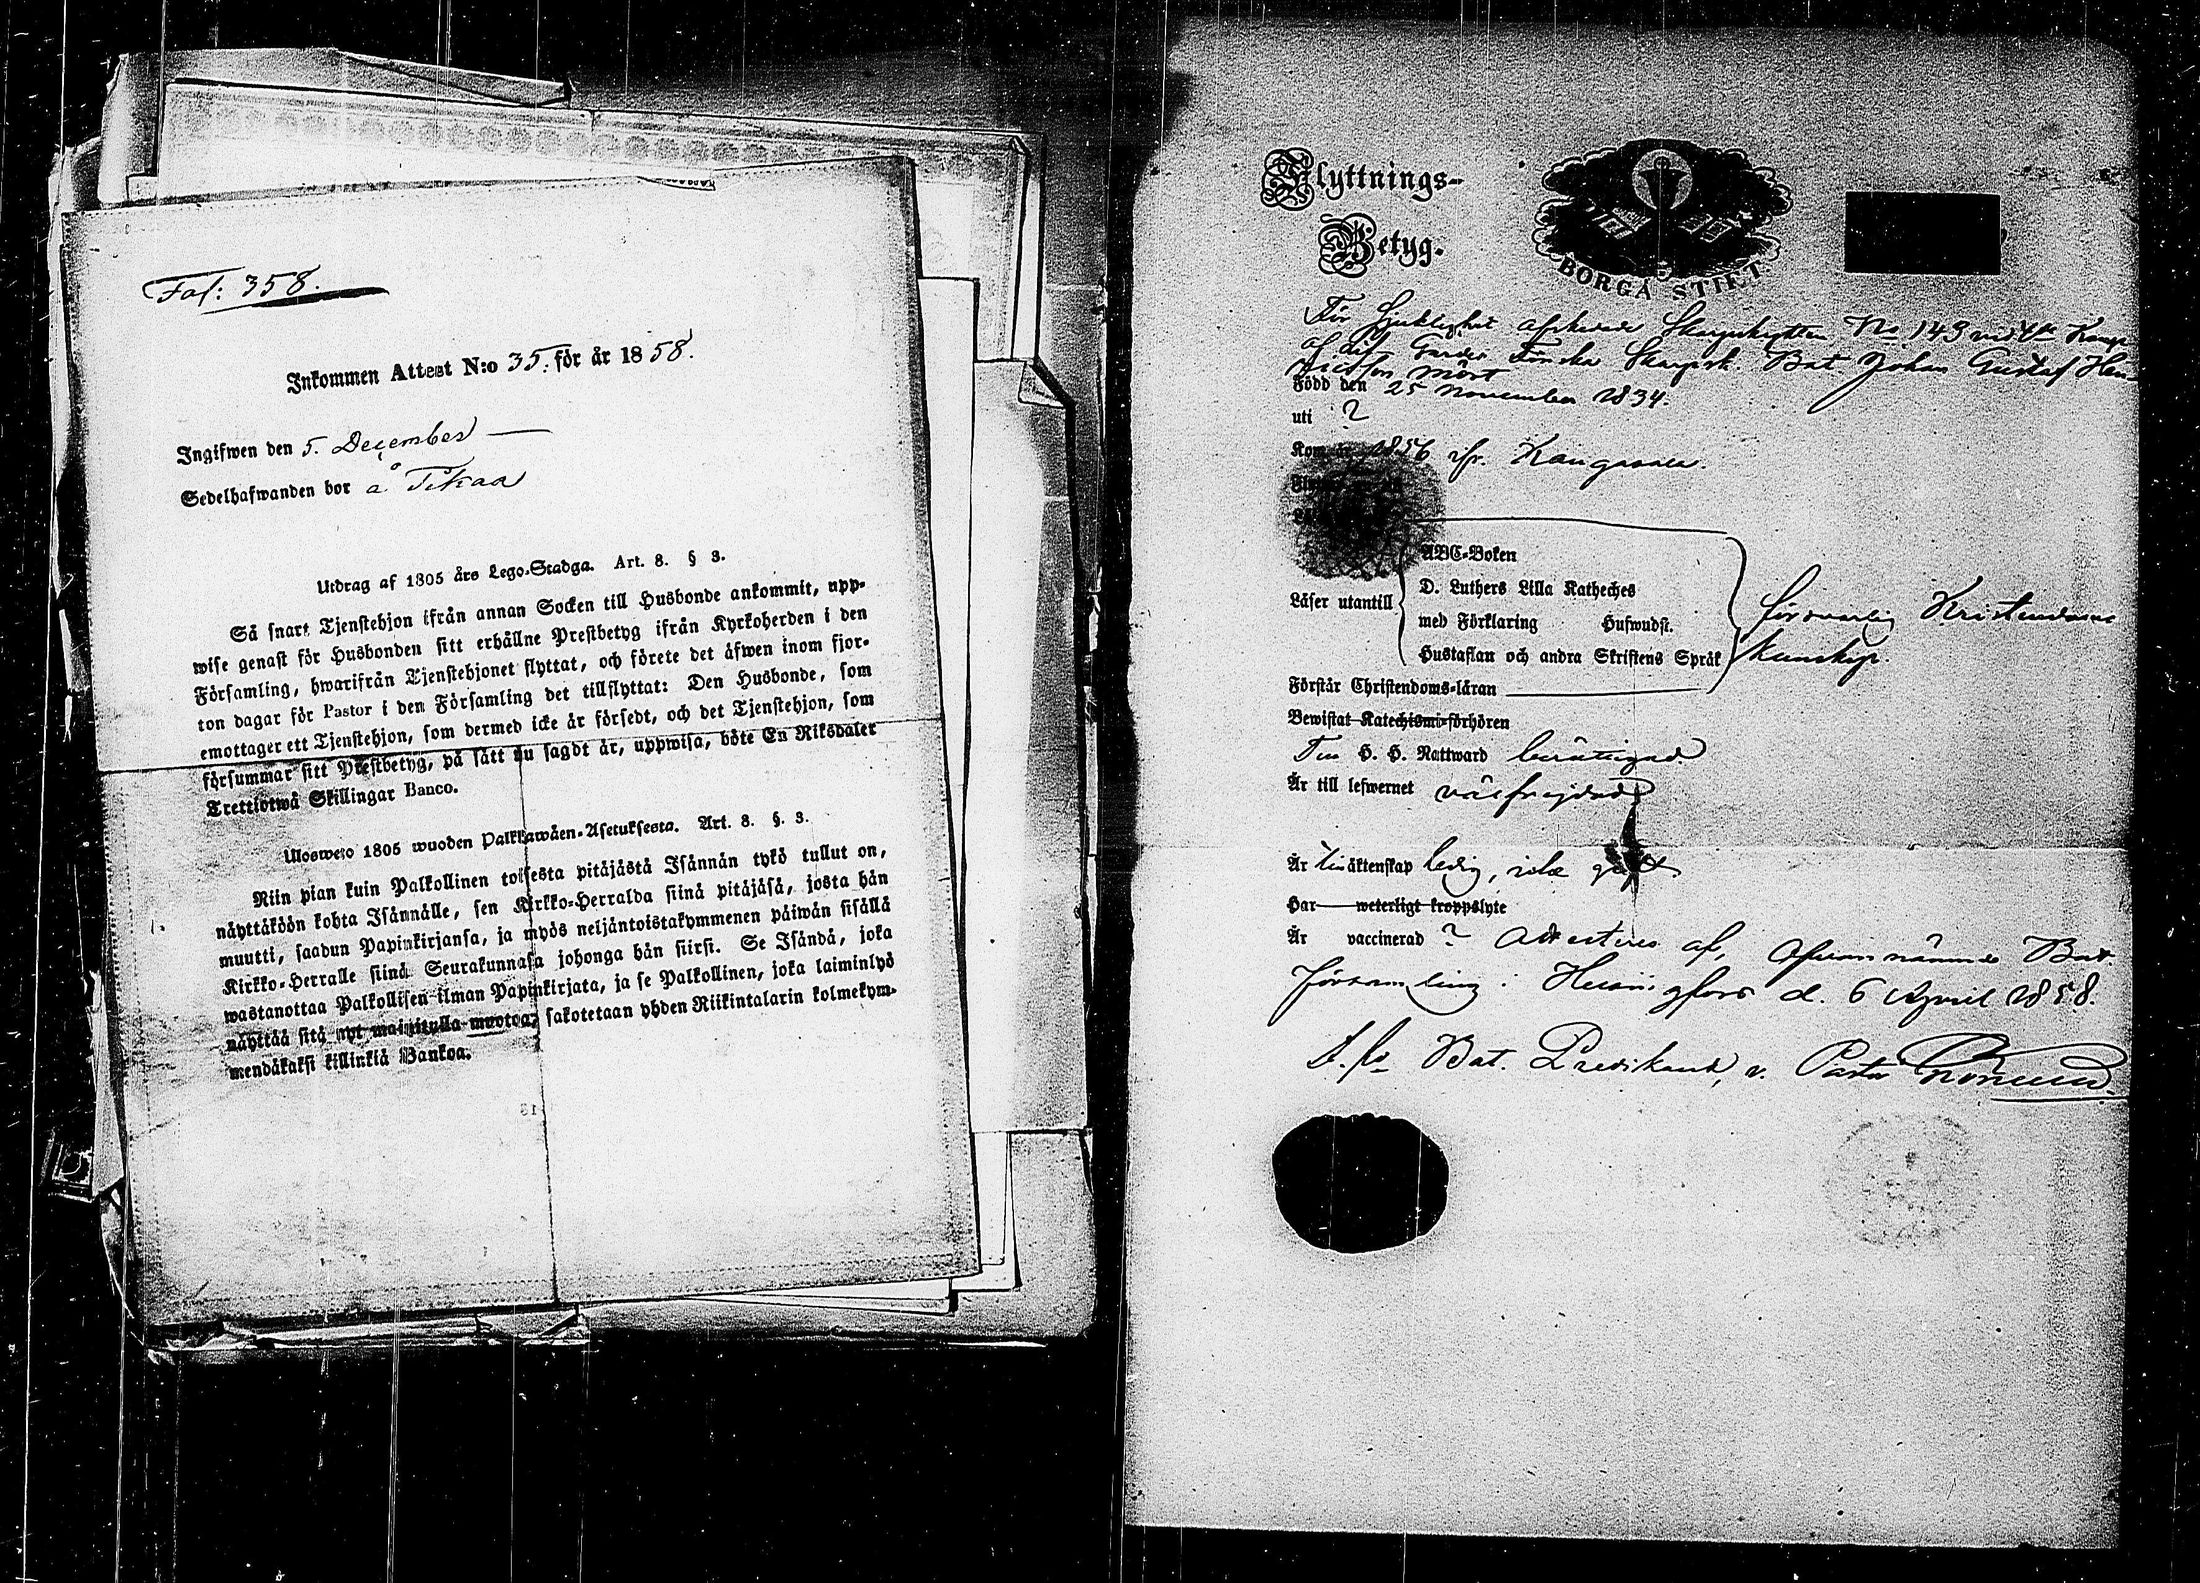 Fol: 358.
Inkommen Attest N:o 35. för år 1858.
Ingifwen den 5. December
Sedelhafwanden bor å Tikaa
Utdrag af 1805 års Lego-Stadga. Art. 8. § 3.
Så snart Tjenstehjon ifrån annan Socken till Husbonde ankommit, upp-
wise genast för Husbonden sitt erhållne Prestbetyg ifrån Kyrkoherden i den
Församling, hwarifrån Tjenstehjonet flyttat, och förete det äfwen inom fjor-
ton dagar för Pastor i den Församling det tillflyttat: Den Husbonde, som
emottager ett Tjenstehjon, som dermed icke är försedt, och det Tjenstehjon, som
försummar sitt Prestbetyg, på sätt nu sagdt är, uppwisa, böte En Riksdaler
Trettiotwå Skillingar Banco.
Ulosweto 1805 wuoden Palkkawäen-Asetuksesta. Art. 8. §. 3.
Niin pian kuin Palkollinen toisesta pitäjästä Isännän tykö tullut on,
näyttäköön kohta Isännälle, sen Kirkko-Herralda siinä pitäjäsä, josta hän
muutti, saadun Papinkirjansa, ja myös neljäntoistakymmenen päiwän sisällä
Kirkko-Herralle siinä Seurakunnasa johonga hän siirsi. Se Isändä, joka
wastanottaa Palkollisen ilman Papinkirjata, ja se Palkollinen, joka laiminlyö
näyttää sitä nyt mainitulla muotoa, sakotetaan yhden Riikintalarin kolmekym-
mendäkaksi killinkiä Bankoa.
Flyttnings-
Betyg.
BORGÅ STIFT
För Sjuklighet afskedade Skarpskytten No 143 vid 4de Komp.
af Lif Gardes Finska Skarpsk. Bat. Johan Gustaf Hen-
ricsson Mört
Född den 25 November 1834.
uti ?
Kom år 1856 ifr. Kangasala.
ABC-Boken
D. Luthers Lilla Katheches
Läser utantill med Förklaring Hufwudst.
Hustaflan och andra Skriftens Språk
försvarlig Kristendoms
kunskap.
Förstår Christendoms-läran
Bewistat Katechismi-förhören
Till H. H. Nattward berättigad
Är till lefwernet välfrejdad
Är till äktenskap ledig, icke gift.
Har weterligt kroppslyte
Är vaccinerad ? Attesteras af, ofvannämnde Bat.
församling i Helsingfors d. 6 April 1858.
Bat. Predikant, v. Pastor